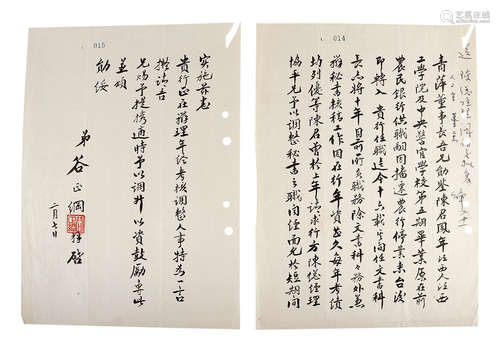 014
青萍董事長吾兄勛鑒陳君鳳年江西人江西
工學院及中央警官學校第五期畢業原在前
農民銀行供職嗣因播遷農行停業來台後
即轉入 貴行任職迄今十六載其間任文書科
長亦將十年目前所負職務除文書科務外兼
辦秘書核稿工作因在行年資甚久每年考績
均列優等陳君曾於上年請求行方陳總經理
協手先予以調整秘書之職問經面允於短期間
015
實施茲悉
貴行正在辦理年終考核調整人事特為一言
擬請吾
兄賜予提携適時予以調升以資鼓勵專此
並頌
勛綏
弟 谷正綱 拜啓
二月七日